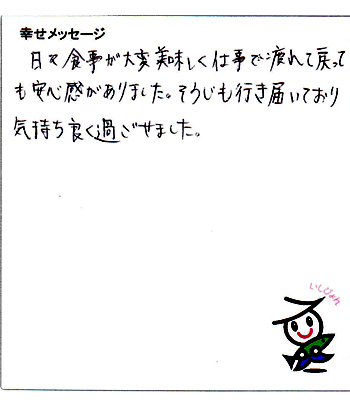 幸せメッセージ
日々食事が大変美味しく仕事で疲れて戻って
も安心感がありました。そうじも行き届いており
気持ち良く過ごせました。
いしぴょん